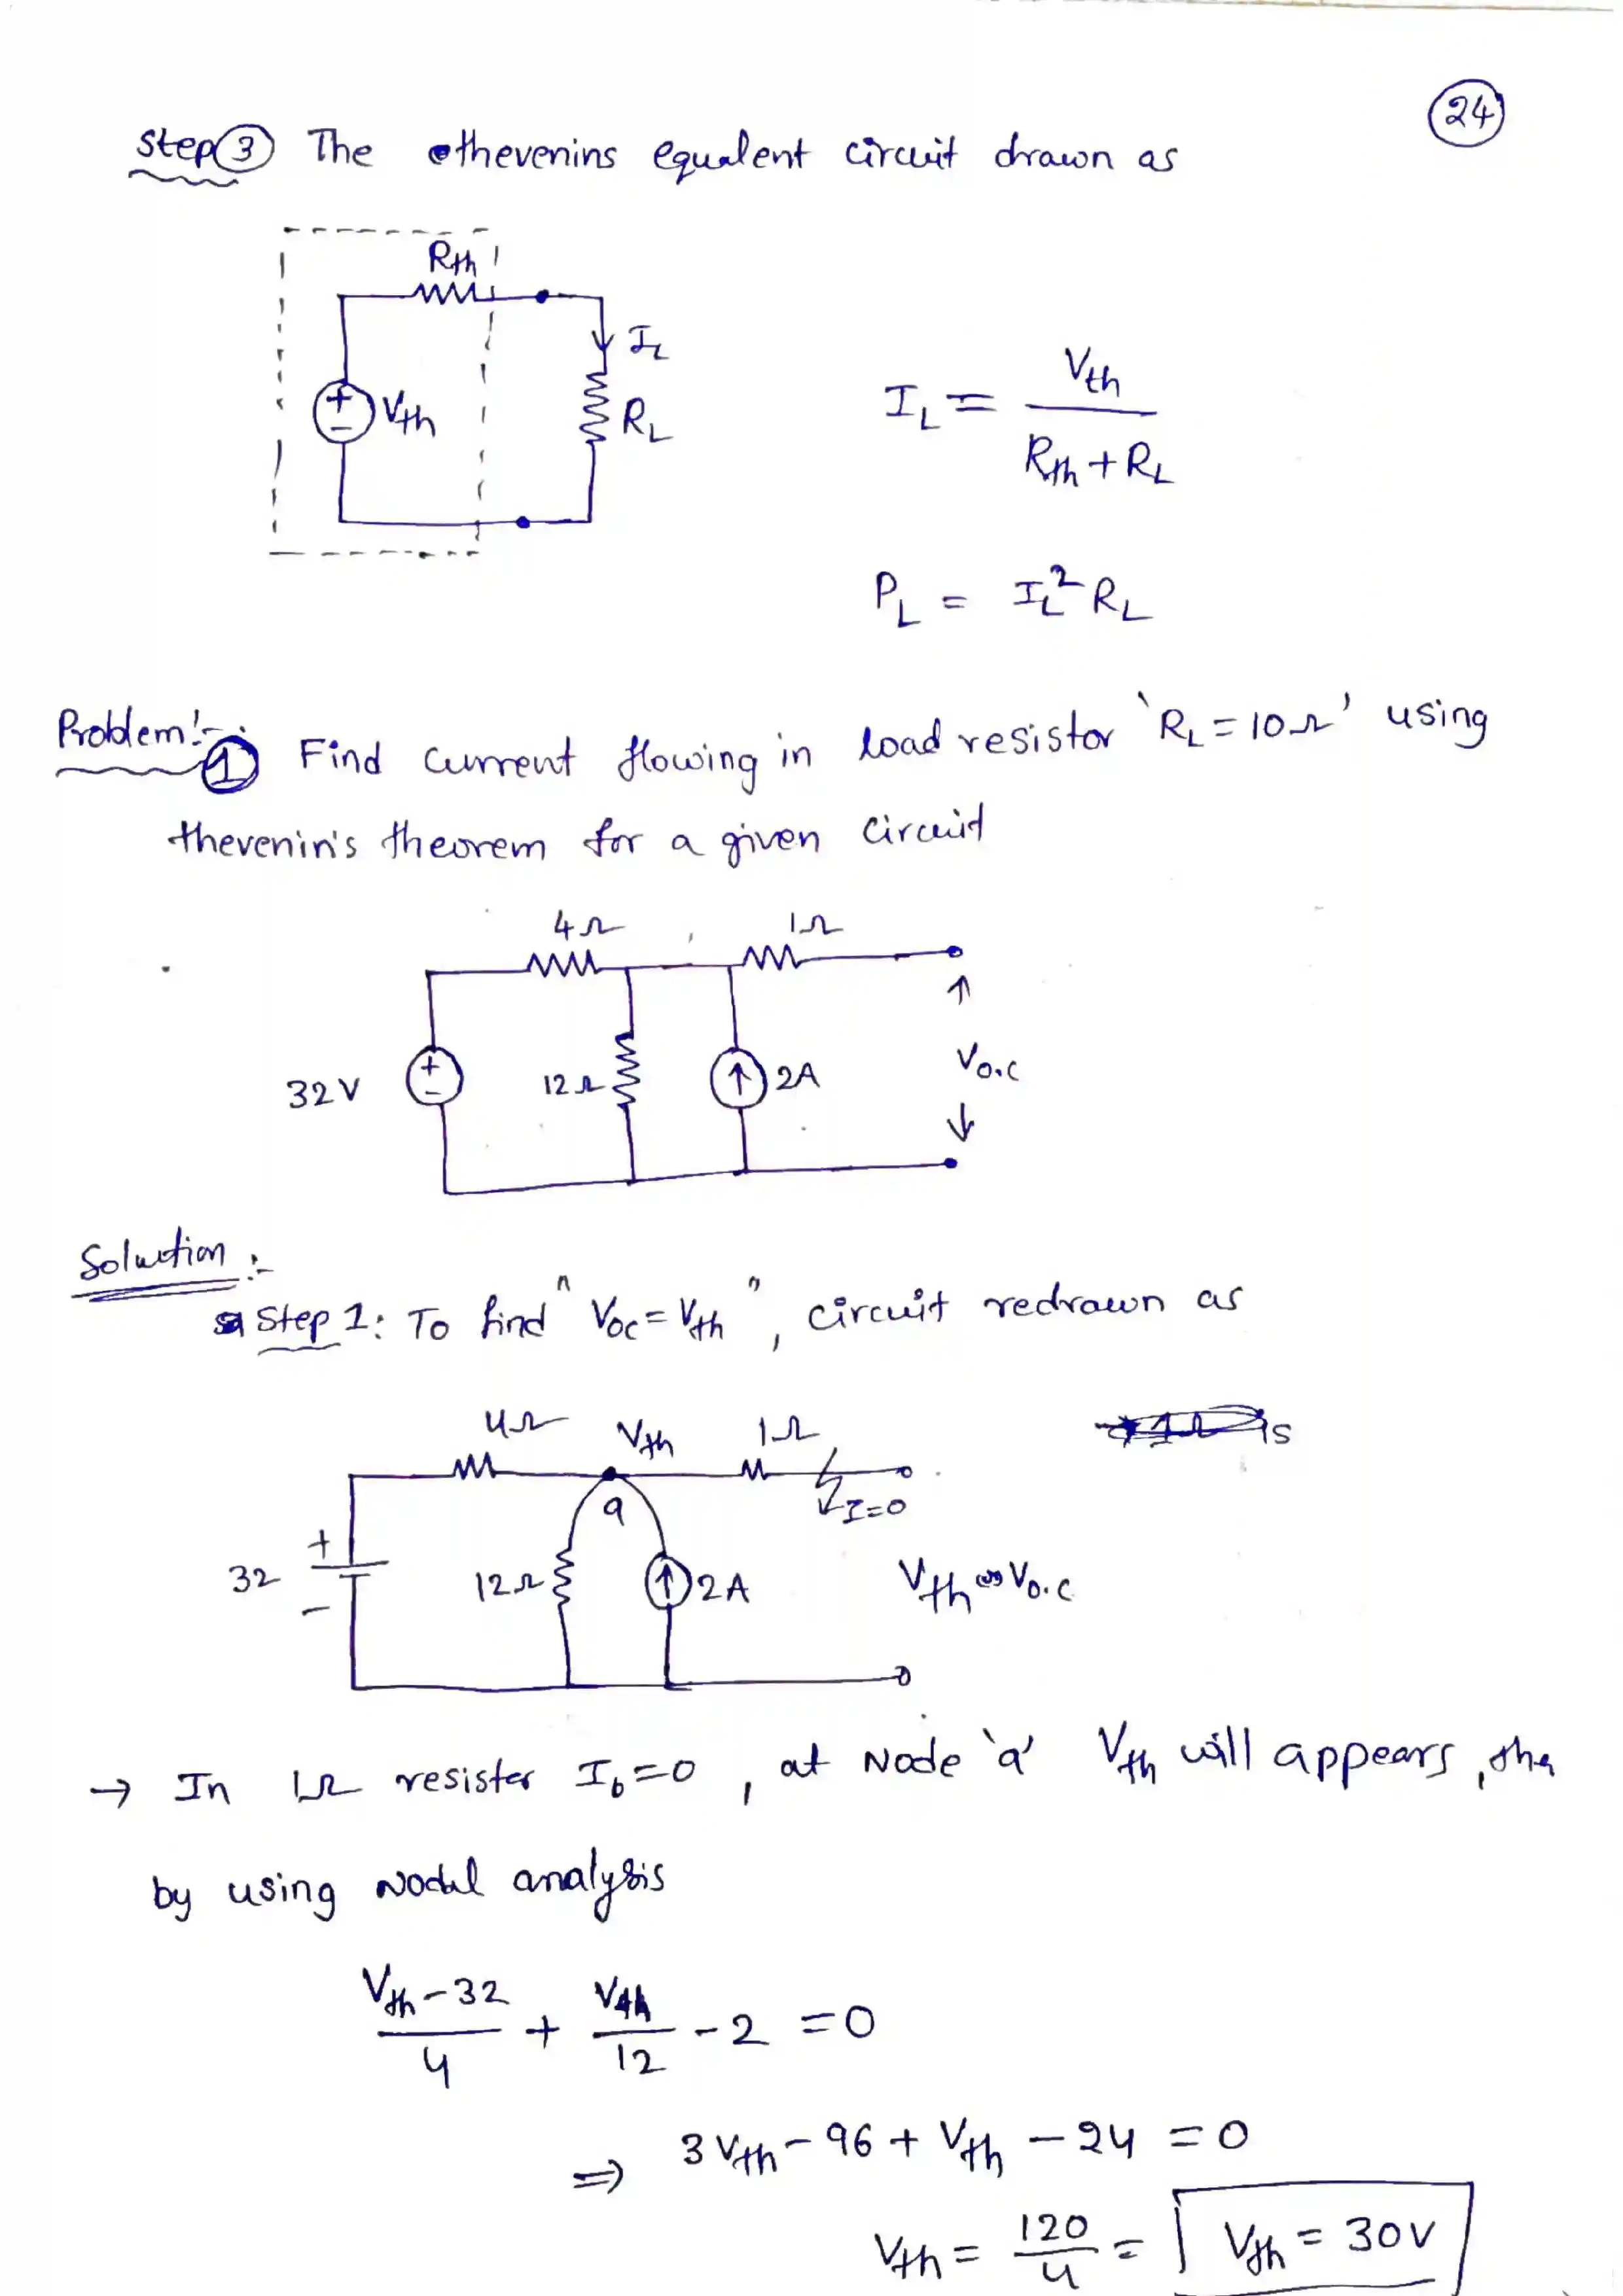 24
Step 3 The thevenins equalent circuit drawn as
Rth
IL
Vth
RL
IL = Vth / (Rth + RL)
PL = IL² RL
Problem:- 1 Find current flowing in load resistor 'RL = 10Ω' using
thevenin's theorem for a given circuit
4Ω 1Ω
32V + - 12Ω 2A Vo.c
Solution :-
Step 1: To find "Voc = Vth", circuit redrawn as
4Ω Vth 1Ω
is
a I=0
32 + - 12Ω 2A Vth Vo.c
→ In 1Ω resister I₀=0, at Node 'a' Vth will appears, the
by using Nodal analysis
(Vth - 32)/4 + Vth/12 - 2 = 0
⇒ 3Vth - 96 + Vth - 24 = 0
Vth = 120/4 = Vth = 30V